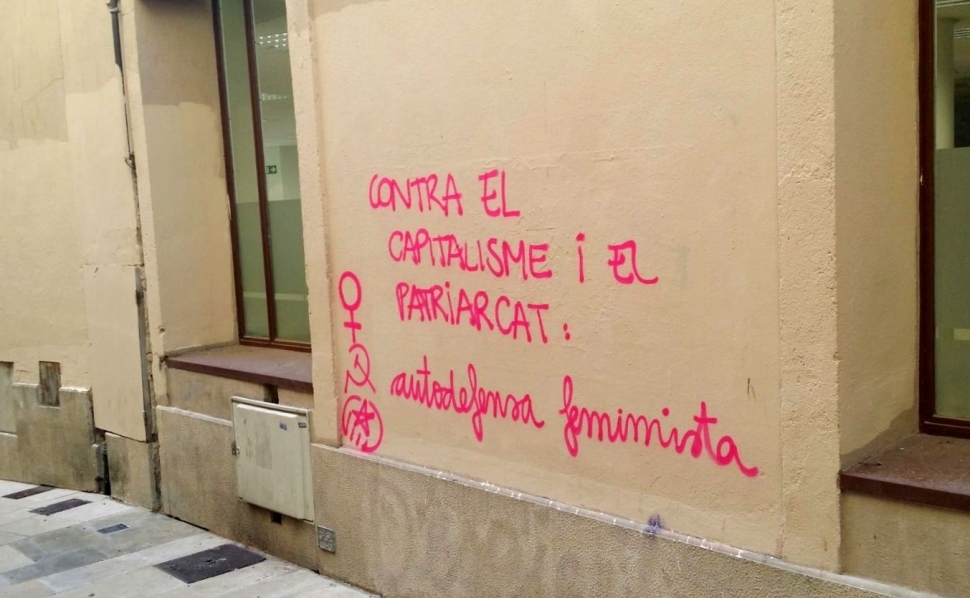 CONTRA EL
CAPITALISME i EL
PATRiARCAT:
autodefensa feminista